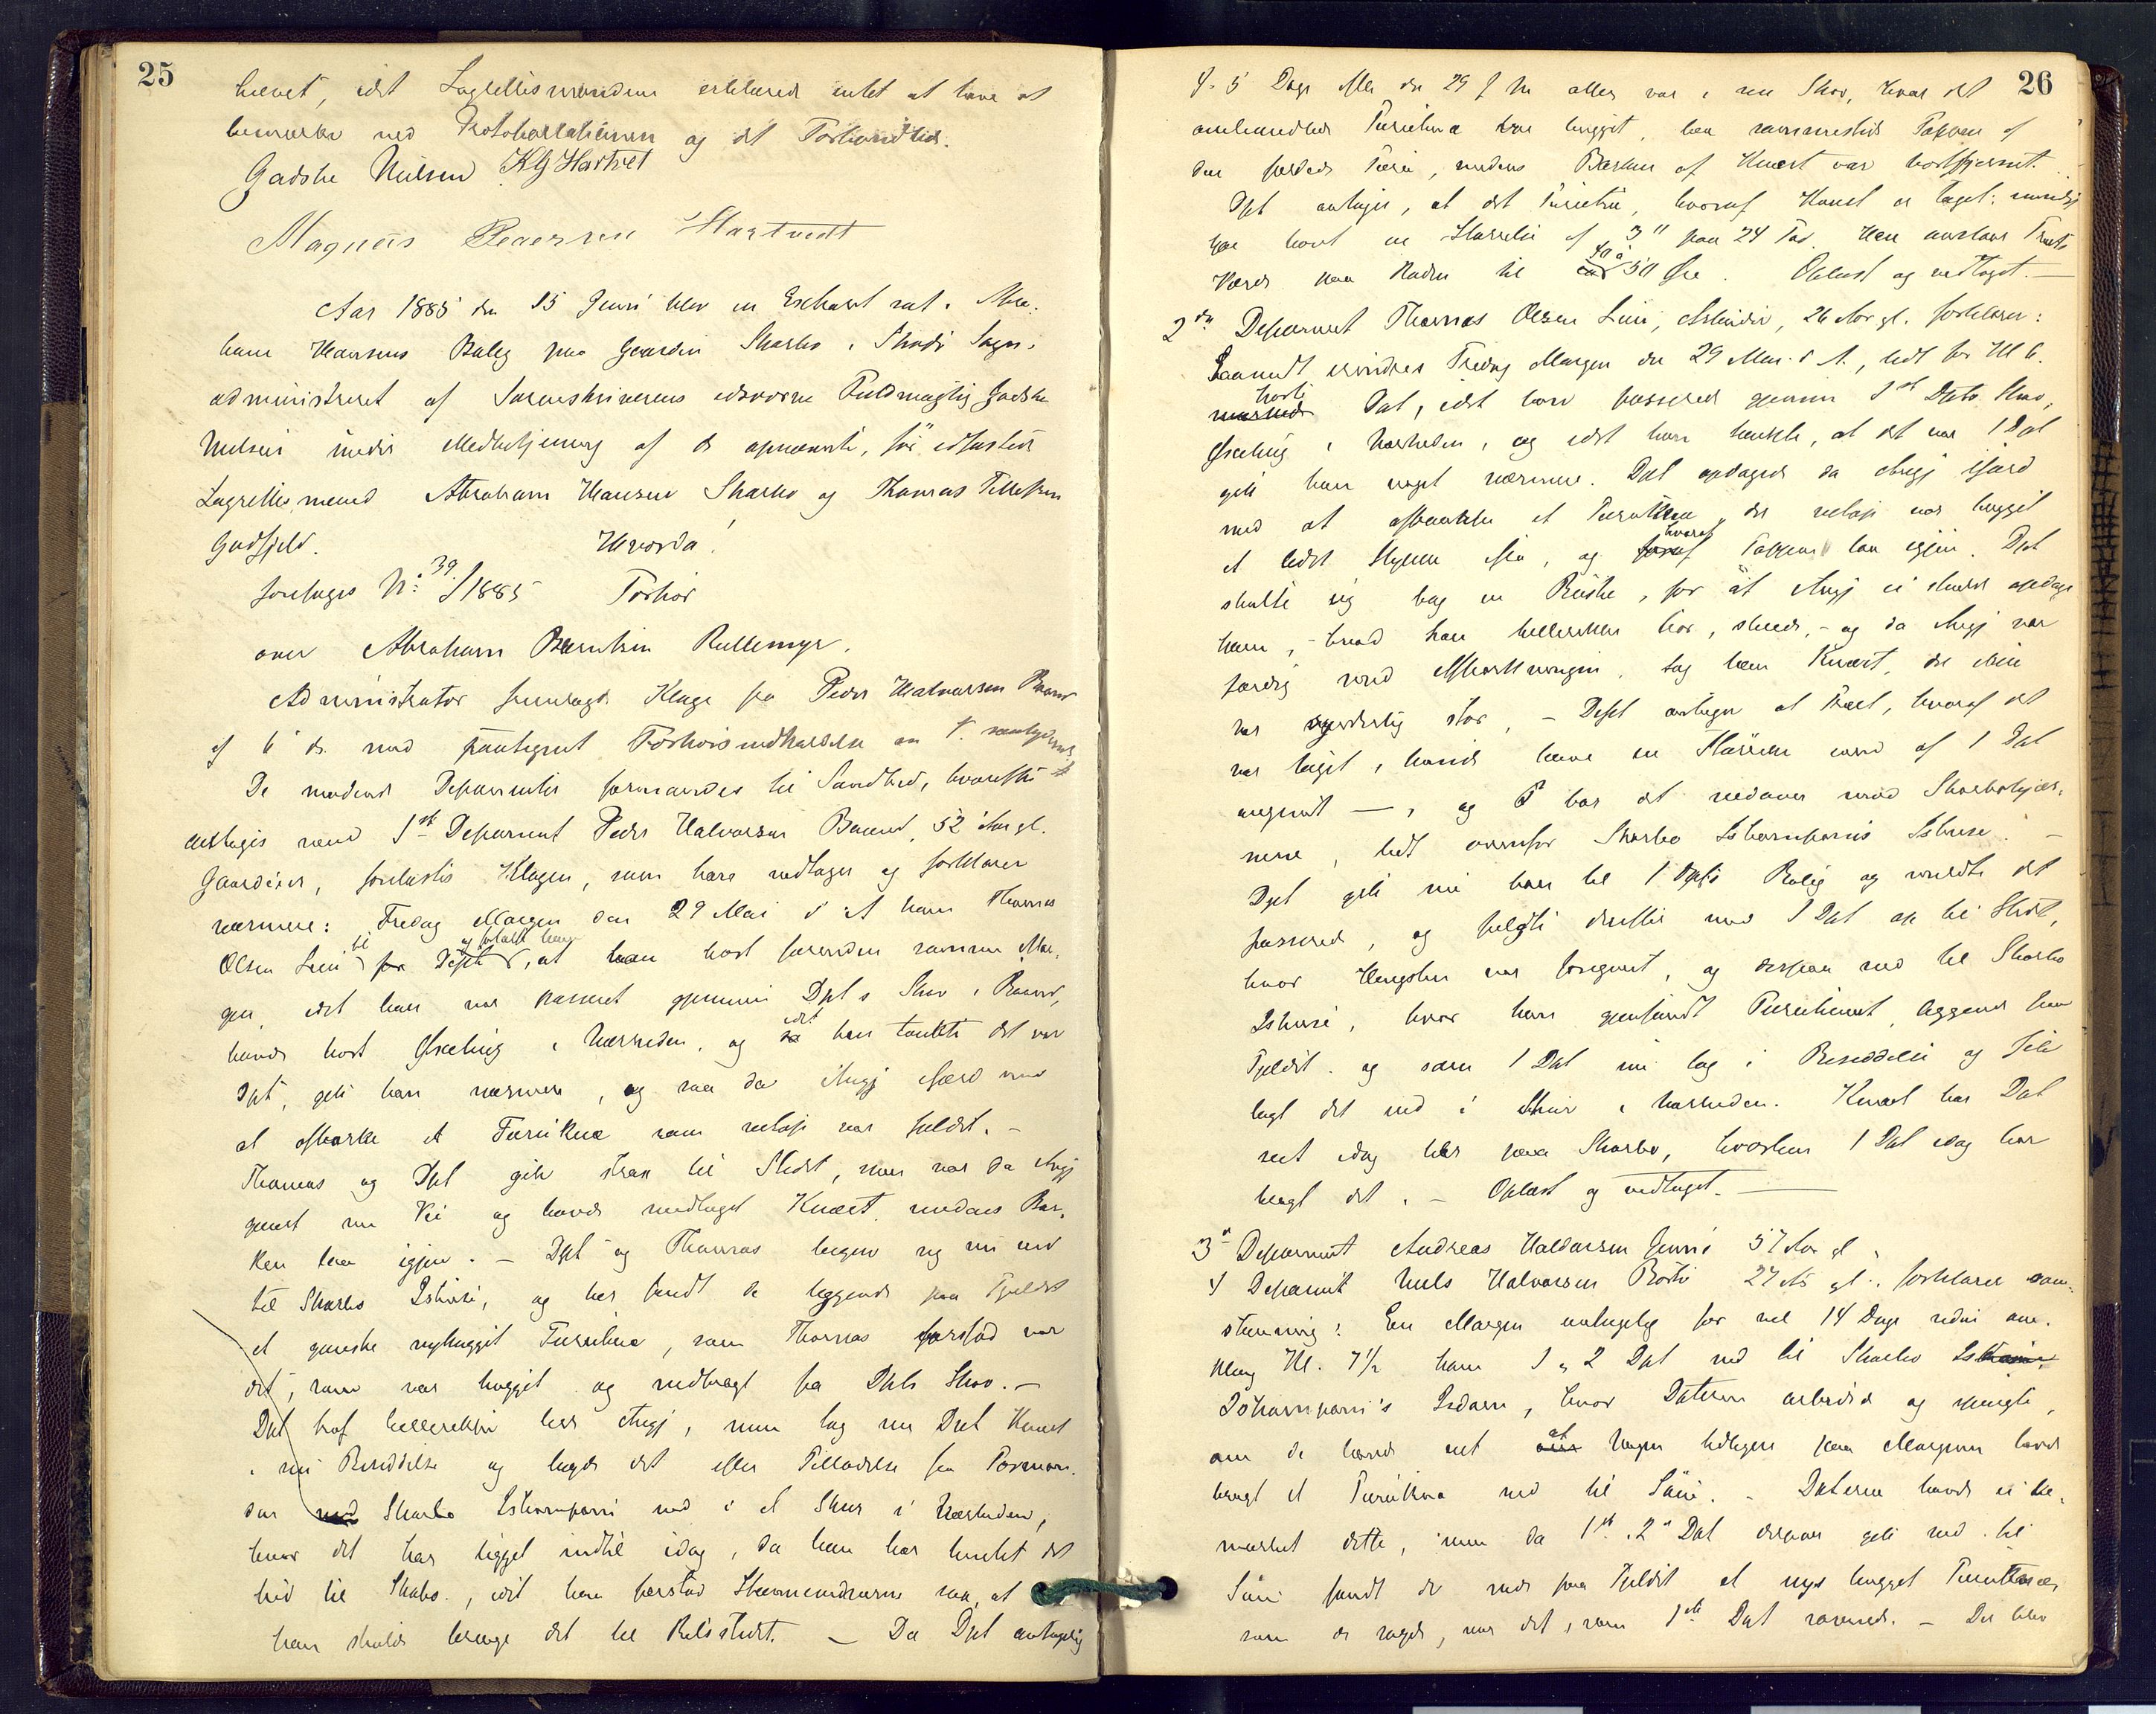 25
hævet, idet Lagrettesmændene erklærede intet at have at
bemærke ved Protokollationen og det Forhandlede.
Gadske Nielsen KGHartvet
Magnus Pedersen Hartvedt
Aar 1885 den 15 Juni blev en Extraret sat i Abra-
ham Hansens Bolig paa Gaarden Skarbo i Skods Sogn,
administreret af Sorenskriverens edsvorne Fuldmægtig Gadske
Nielsen under Medbetjening af de opnævnte, før edfæstede
Lagrettesmænd Abraham Hansen Skarbo og Thomas Tellefsen
Gudfjeld. Hvorda!
foretages No 39/1885 Forhør
over Abraham Berntsen Rullemyr.
Administrator fremlagde Klage fra Peder Halvorsen
af 6 ds. med paategnet Forhørsindkaldelse
De mødende Deponenter formanedes til Sandhed, hvorefter
antages som 1ste Deponent Peder Halvorsen 52 Aar gl.
Gaardeier, forelæstes Klagen, som han vedtager og forklarer
nærmere: Fredag Morgen den 29 Mai d A kom Thomas
Olsen til Dept og fortalte ham, at han havde samme Mor-
gen, idet han var passeret gjennem Dpts Skov i
havde hørt Øxehug i Nærheden, og idet han tænkte det var
Dpt, gik han nærmere, og saa da Angj ifærd med
at afbarke et Furuknæ som netop var fældet. -
Thomas og Dpt gik strax til Stedet, men var da Angj
gaaet sin Vei og havde medtaget Knæet, medens Bar-
ken laa igjen. - Dpt og Thomas begav sig nu ned
til Skarbo Ishuse, og her fandt de liggende paa Fjeldet
et ganske nyhugget Furuknæ, som Thomas forstod var
det, som var hugget og nedbragt fra Dpts Skov. -
Dpt traf hellerikke her Angj, men tog nu Dpt Knæet
i sin Besiddelse og lagde det efter Tilladelse fra Forman-
den Skarbo Iskompani ned i et Skur i Nærheden,
hvor det har ligget indtil idag, da han har hentet det
hid til Skarbo, idet han forstod Stævnemændene saa, at
han skulde bringe det til Retsstedet. - Da Dpt antagelig
26
4-5 Dage efter den 29 f M atter var i sin Skov, hvor det
omhandlede Furuknæ var hugget, laa sammesteds Toppen af
den fældede Furu, medens Barken af Knæet var bortfjernet.
Dpt antager, at det Furutræ, hvoraf Knæet er taget, mindst
har havt en Størrelse af 3" paa 24 Fod. Han anslaar Træets
Værdi paa Roden til 40 a 50 Øre. Oplæst og vedtaget.-
2den Deponent Thomas Olsen, Arbeider, 26 Aar gl. forklarer:
Fredag Morgen den 29 Mai d A., lidt før Kl 6.
hørte Dpt, idet han passerede gjennem 1ste Dpts Skov,
Øxehug i Nærheden, og idet han tænkte, at det var 1 Dpt
gik han noget nærmere. Dpt opdagede da Angj ifærd
med at afbarke et Furuknæ, der netop var hugget
et lidet Stykke ifra, og hvoraf Toppen laa igjen. Dpt
skulte sig bag en Buske, for at Angj ei skulde opdage
ham, - hvad han hellerikke skede, - og da Angj var
færdig med Afbarkningen, tog han Knæet, der ikke
var synderlig stor, - Dpt antager at Træet, hvoraf det
var taget, havde havt en Størrelse som af 1 Dpt
angivet -, og bar det nedover mod
lidt ovenfor Skarbo Iskompanis Ishuse. -
Dpt gik nu hen til 1 Dpts Bolig og meldte det
passerede, og fulgte derefter med 1 Dpt op til Stedet,
hvor Hugsten var foregaaet, og derpaa ned til Skarbo
Ishuse, hvor han gjenfandt Furuknæet, liggende paa
Fjeldet, og som 1 Dpt nu tog i Besiddelse og fik
lagt det ned i Skur i Nærheden. Knæet har Dpt
seet idag her paa Skarbo, hvorhen 1 Dpt idag har
bragt det. - Oplæst og vedtaget.
3 Deponent Andreas Halvorsen 57 Aar gl,
4 Deponent Niels Halvorsen 27 Aar gl., forklarer sam-
stemmig: En Morgen antagelig for vel 14 Dage siden om-
kring Kl. 7½ kom 1 og 2 Dpt ned til Skarbo
Iskompani's Isdam, hvor Dpterne arbeided og spurgte,
om de havde seet at Nogen tidligere paa Morgenen havde
bragt et Furuknæ ned til Søen. - Dpterne havde ei be-
mærket dette, men da 1ste og 2den Dpt derpaa gik ned til
Søen fandt de nede paa Fjeldet et nys hugget Furuknæ,
som de sagde, var det, som 1ste Dpt savnede. - Der blev